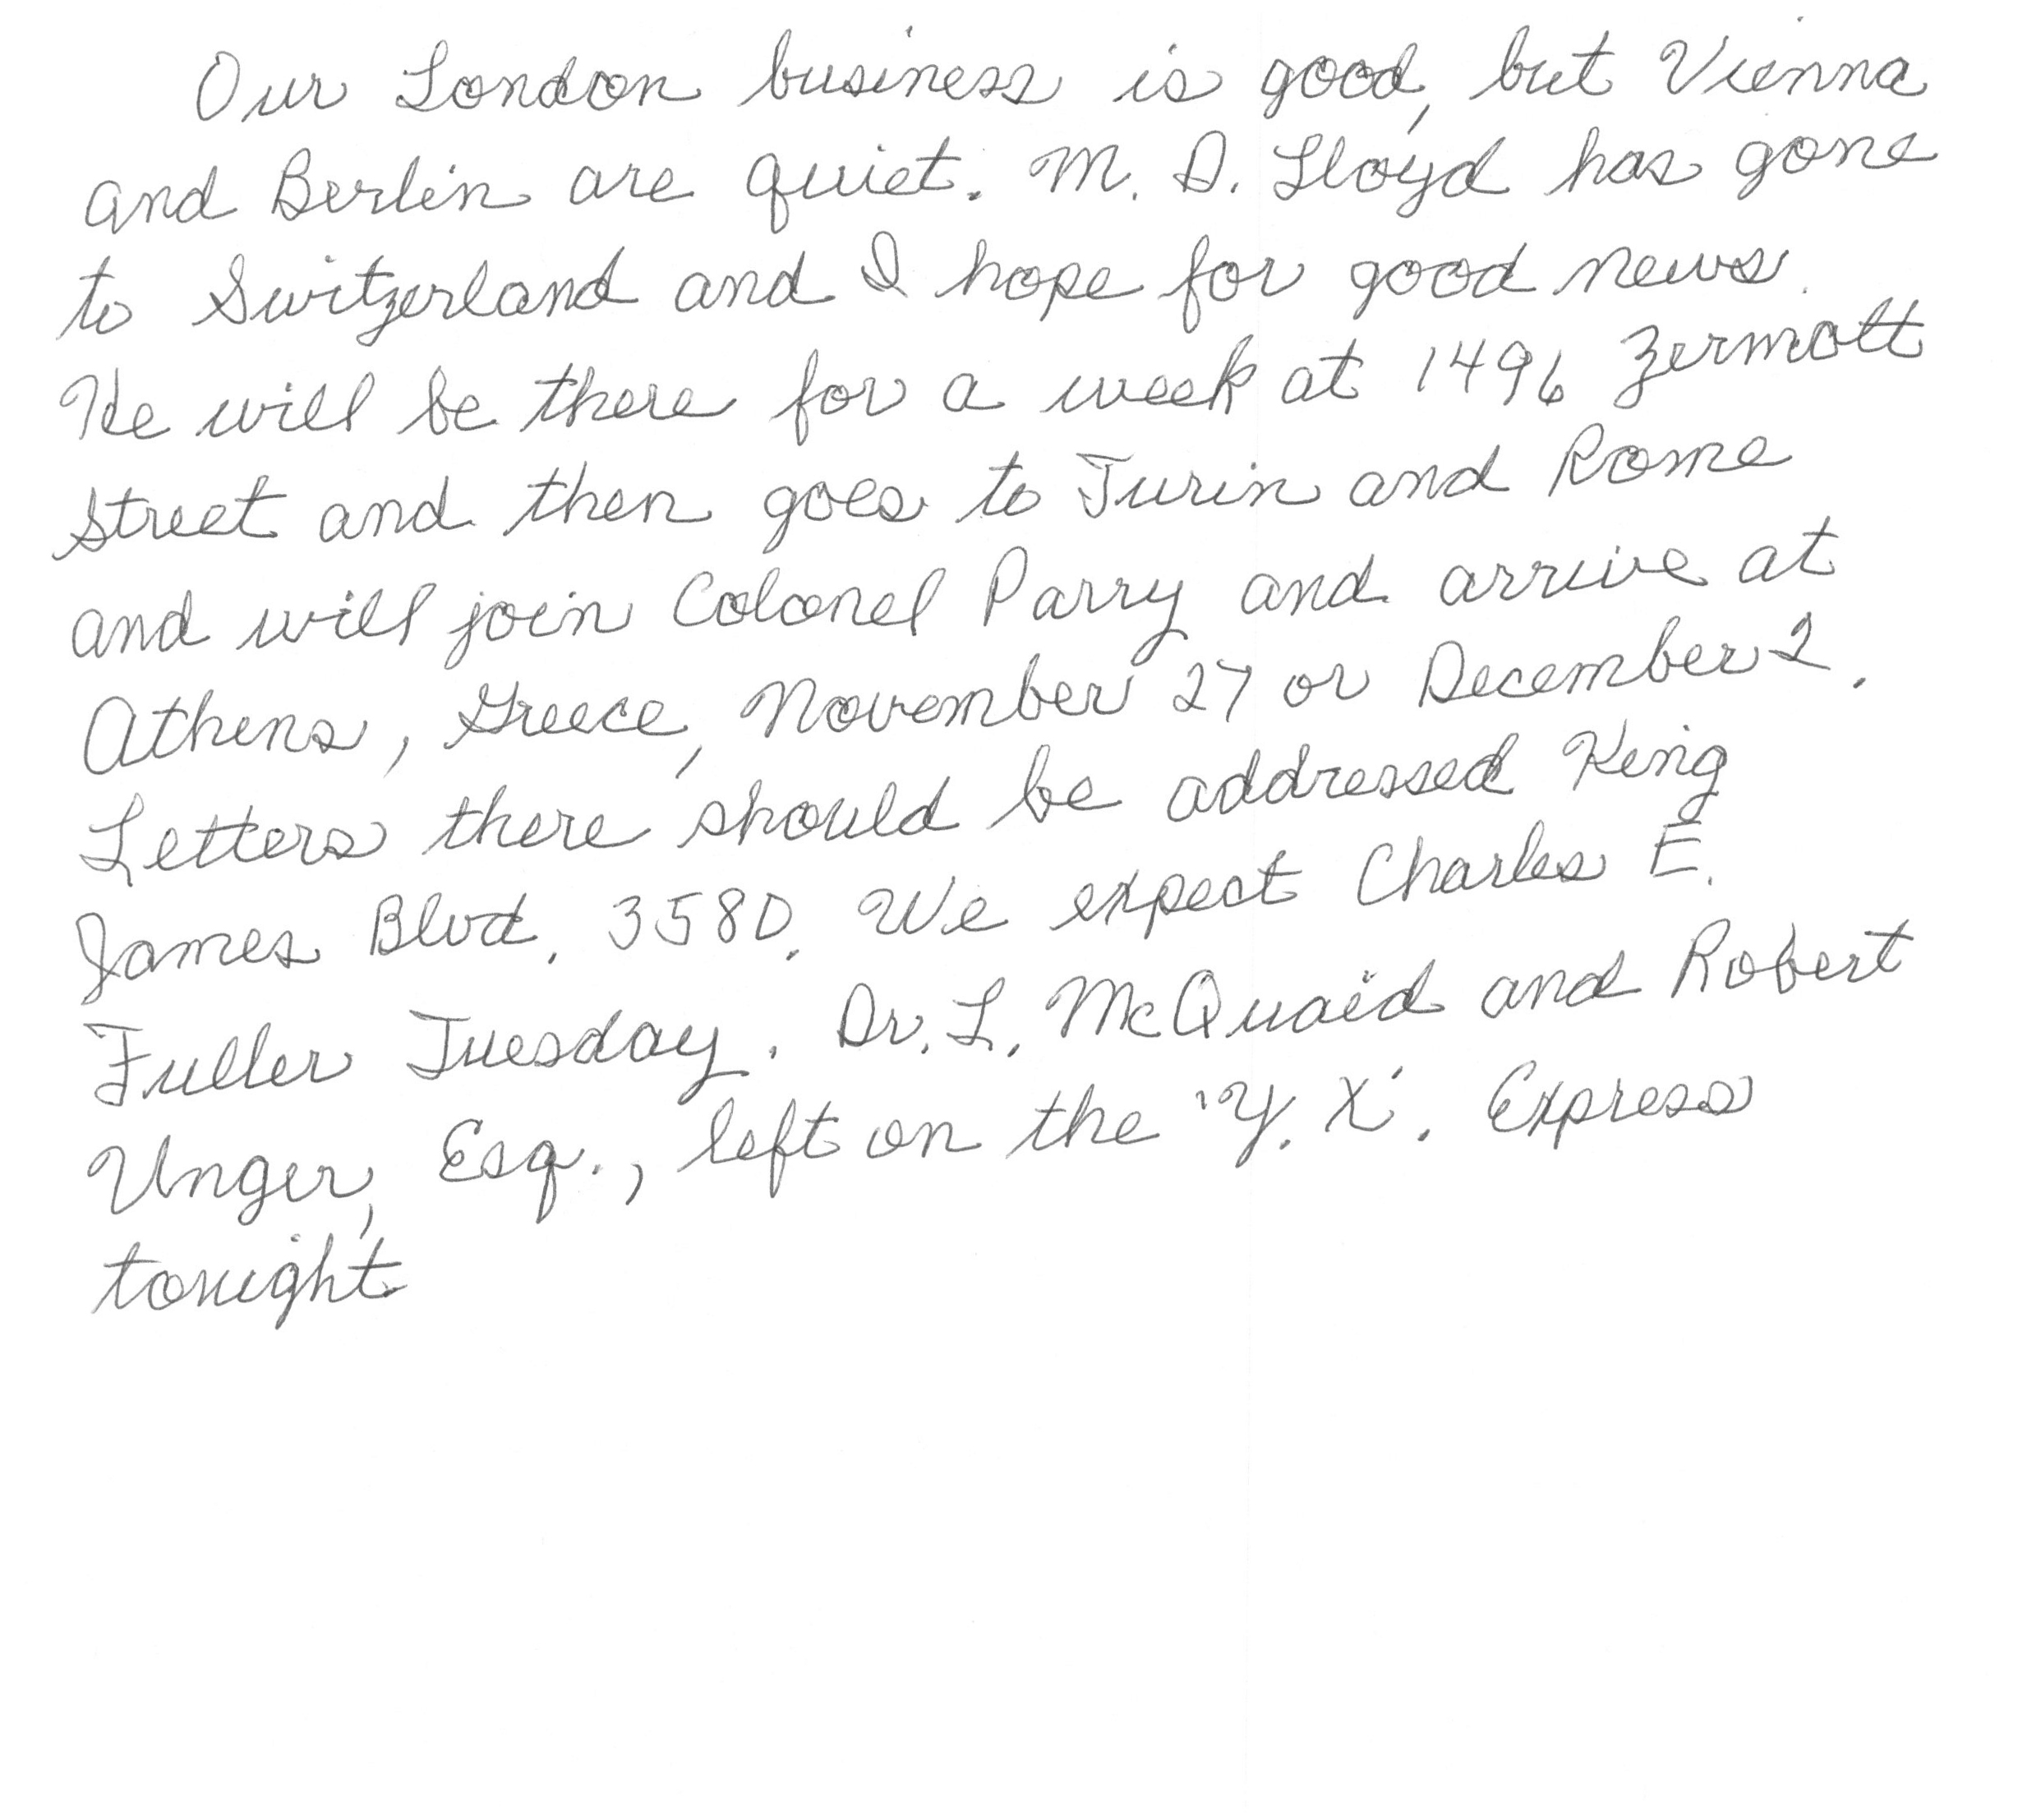 Our London business is good, but Vienna
and Berlin are quiet. M. D. Lloyd has gone
to Switzerland and I hope for good news.
He will be there for a week at 1496 Zermott
Street and then goes to Turin and Rome
and will join Colonel Parry and arrive at
Athens, Greece, November 27 or December 2.
Letters there should be addressed King
James Blvd. 3580. We expect Charles E.
Fuller Tuesday. Dr. L. McQuaid and Robert
Unger, Esq., left on the 'Y. X'. Express
tonight